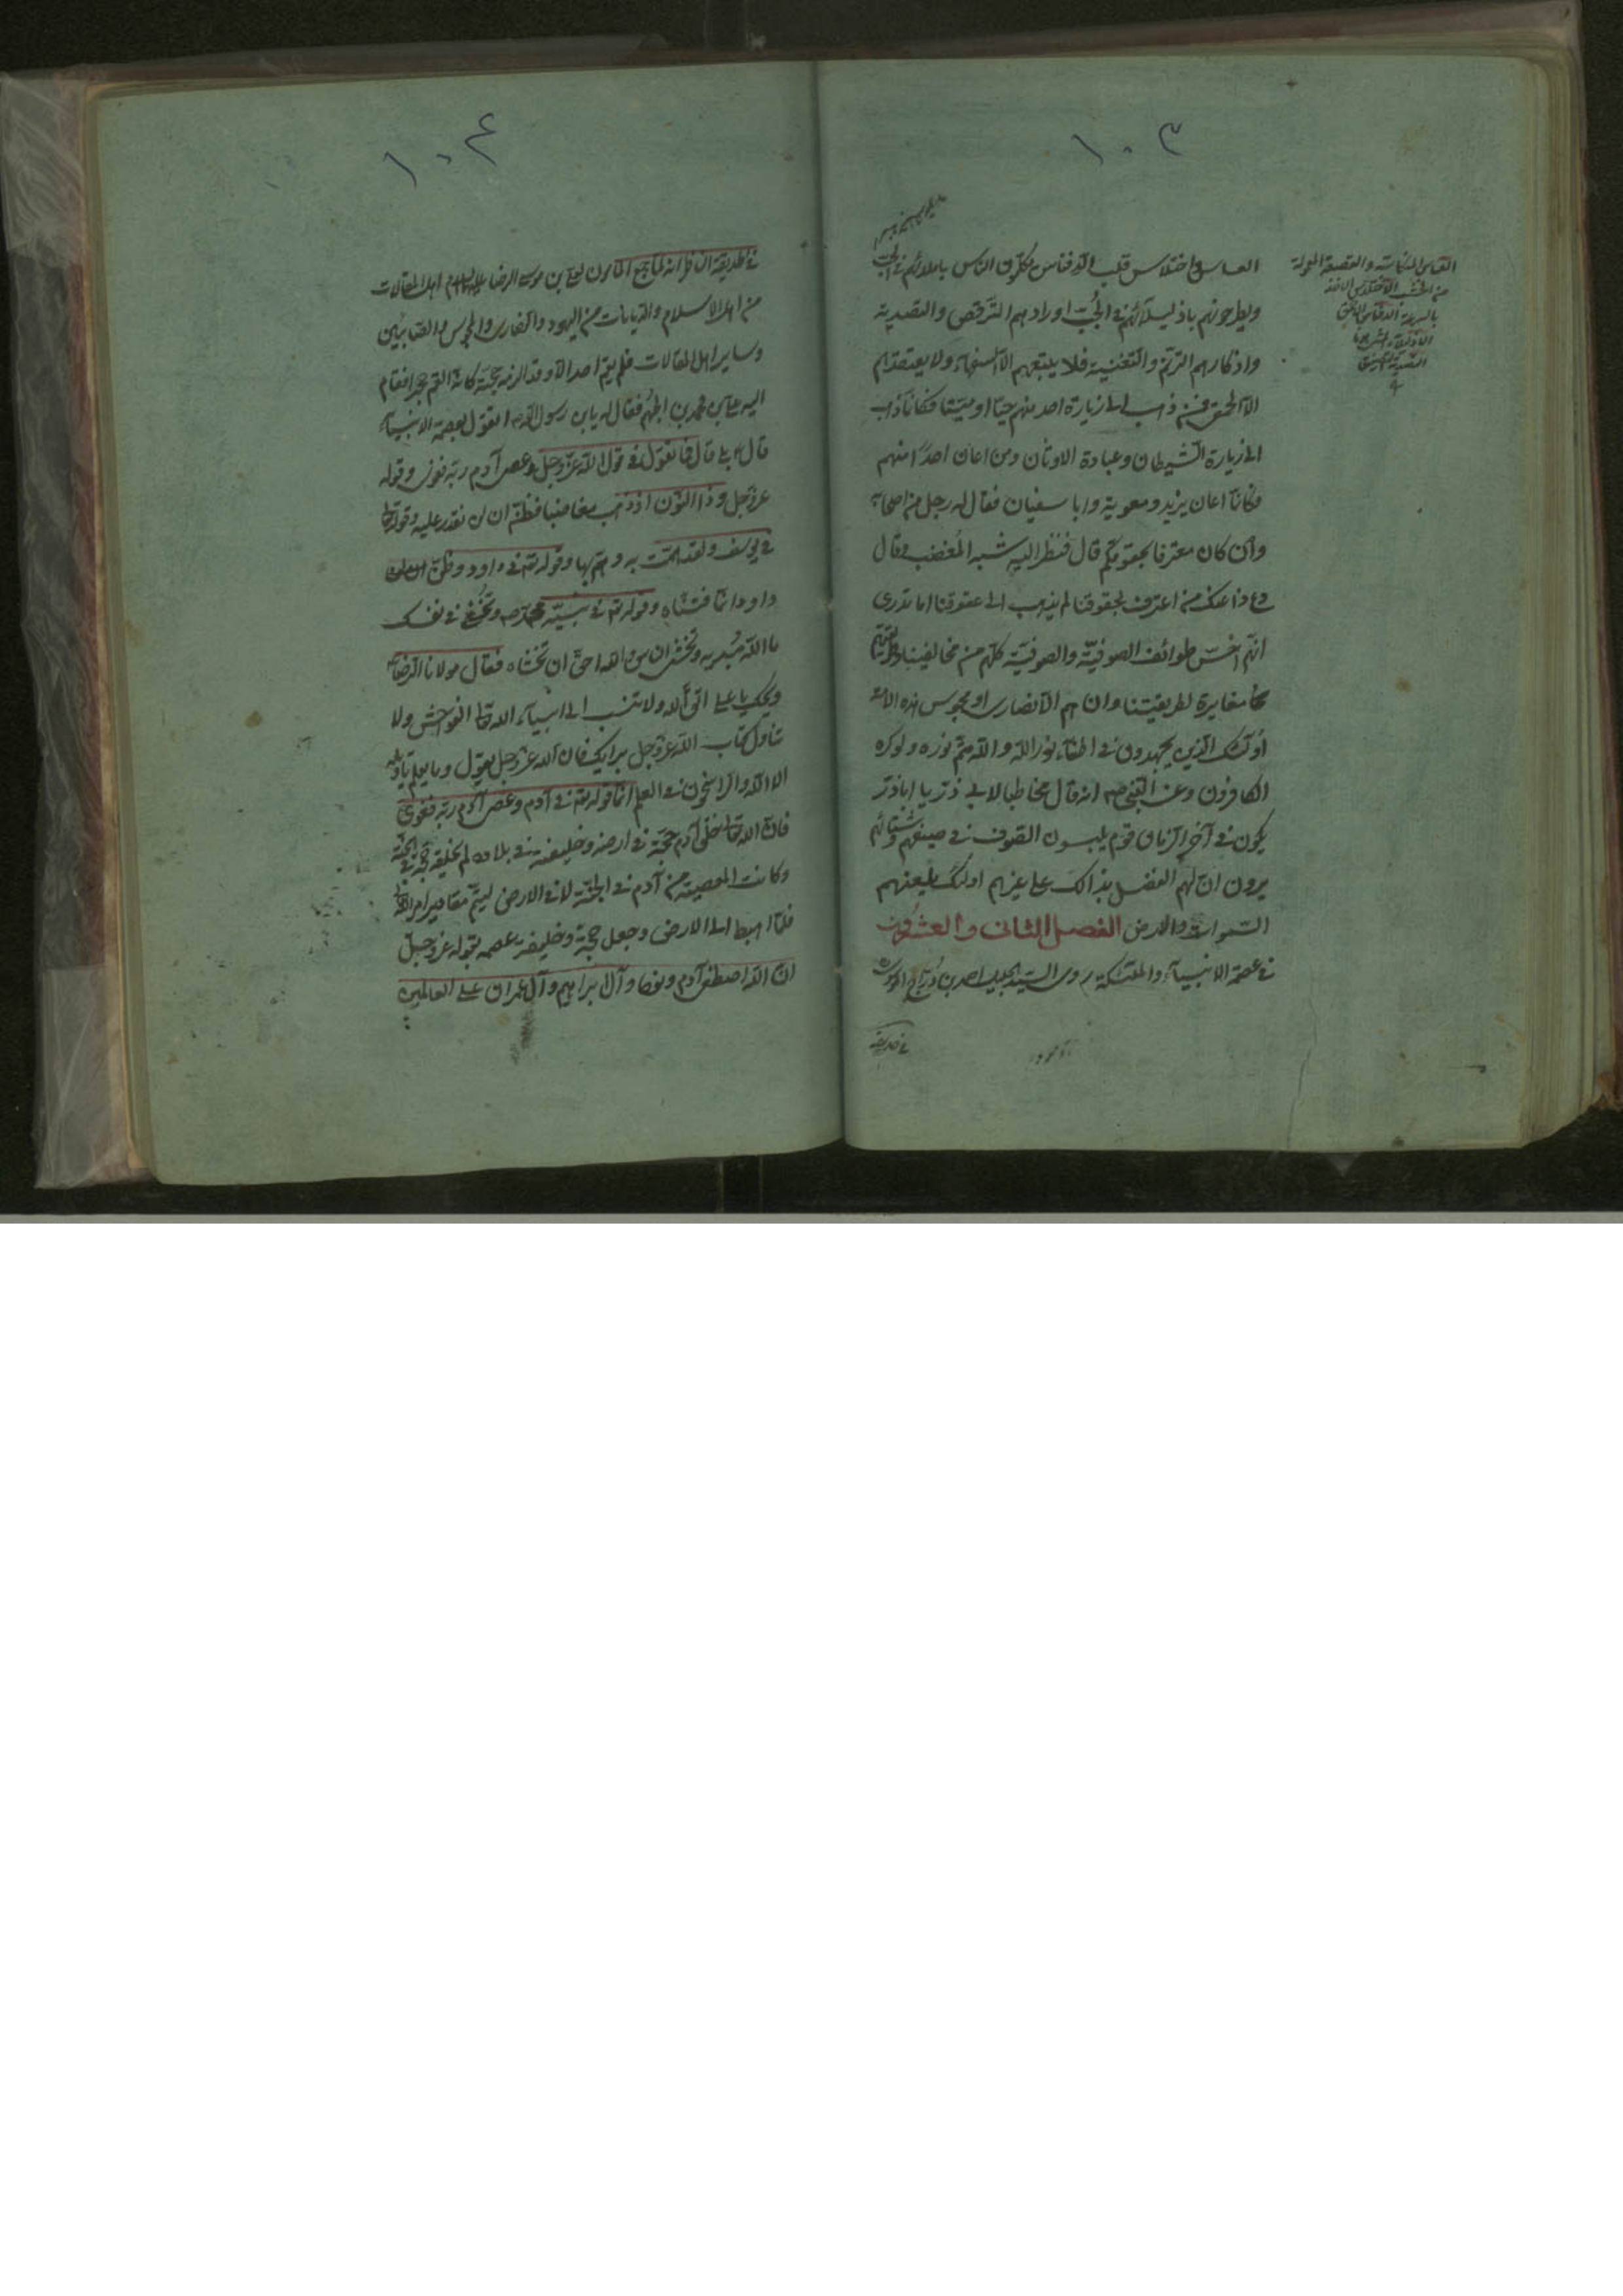 ١٠٣
العساس واختلاس قلب الدفناس يكلّمون الناس باملائهم في الحبّ
ويطرحونهم باذليلائهم في الجُبّ اورادهم الترقّص والتصدية
واذكارهم الترنّم والتغنية فلا يتبعهم الّا السفهاء ولا يعتقد بهم
الّا الحمقى فمن ذهب الى زيارة احد منهم حيّا او ميّتا فكانّما ذهب
الى زيارة الشيطان وعبادة الاوثان ومن اعان احدًا منهم
فكانّما اعان يزيد ومعوية وابا سفيان فقال له رجل من اصحابه
وان كان معترفا بحقوقكم قال فنظر اليه شبه المُغضب وقال
دع ذا عنك من اعترف بحقوقنا لم يذهب الى عقوقنا اما تدرى
انّهم اخسّ طوائف الصوفيّة والصوفيّة كلّهم من مخالفينا وطريقتهم
مغايرة لطريقتنا وان هم الّا نصارى او مجوس هذه الامّة
اولئك الذين يجهدون في اطفاء نور الله والله متمّ نوره ولو كره
الكافرون وعن النبي ص انه قال مخاطبا لابي ذر يا اباذر
يكون في آخر الزمان قوم يلبسون الصوف في صيفهم وشتائهم
يرون انّ لهم الفضل بذالك على غيرهم اولئك يلعنهم
السموات والارض الفصل الثانى والعشرون
في عصمة الانبياء والملئكة روى السيد الجليل احمد بن
١٠٤
انه لما جمع المأمون لعلي بن موسى الرضا عليه السلام اهل المقالات
من اهل الاسلام والديانات من اليهود والنصارى والمجوس والصابئين
وساير اهل المقالات فلم يقم احد الّا وقد الزمه حجّته كانّه القم حجرا فقام
اليه علي بن محمد بن الجهم فقال له يابن رسول الله اتقول بعصمة الانبياء
قال بلى قال فما تقول في قول الله عزّ وجل وعصى آدم ربّه فغوى وقوله
عزّ وجل وذا النّون اذ ذهب مغاضبا فظنّ ان لن نقدر عليه وقوله
في يوسف ولقد همّت به وهمّ بها وقوله تع في داود وظنّ
داود انّما فتنّاه وقوله تع في نبيّه محمد ص وتخفي في نفسك
ما الله مُبديه وتخشى الناس والله احقّ ان تخشاه فقال مولانا الرضا
ويحك يا علي اتق الله ولا تنسب الى انبياء الله الفواحش ولا
تتأول كتاب الله عزّ وجل برايك فان الله عزّ وجل يقول وما يعلم تأويله
الا الله والراسخون في العلم امّا قوله تع في آدم وعصى آدم ربّه فغوى
فانّ الله تعالى خلق آدم حجّة في ارضه وخليفته في بلاده لم يخلقه للجنّة
وكانت المعصية من آدم في الجنّة لا في الارض ليتمّ مقادير امر الله
فلمّا اهبط الى الارض وجعل حجّة وخليفة عصمه بقوله عزّ وجلّ
انّ الله اصطفى آدم ونوحا وآل ابراهيم وآل عمران على العالمين